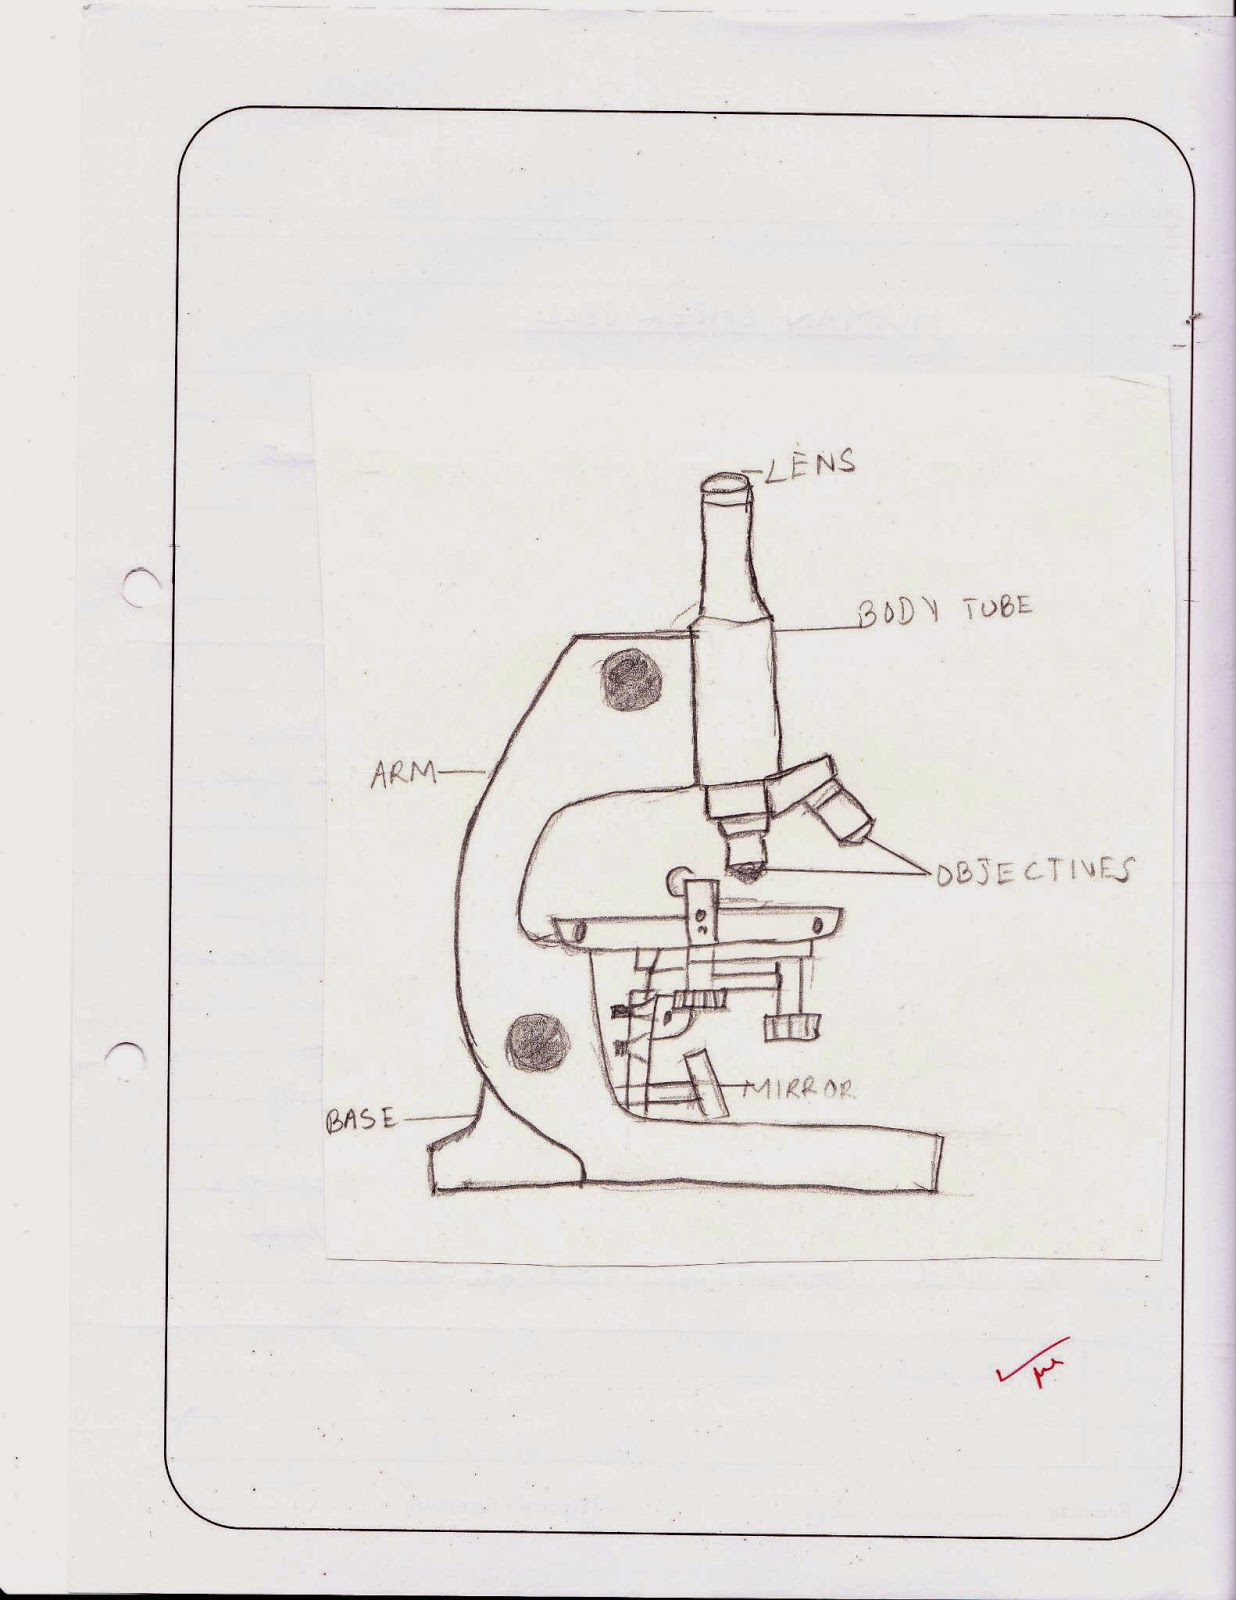 LENS
BODY TUBE
ARM
OBJECTIVES
MIRROR
BASE